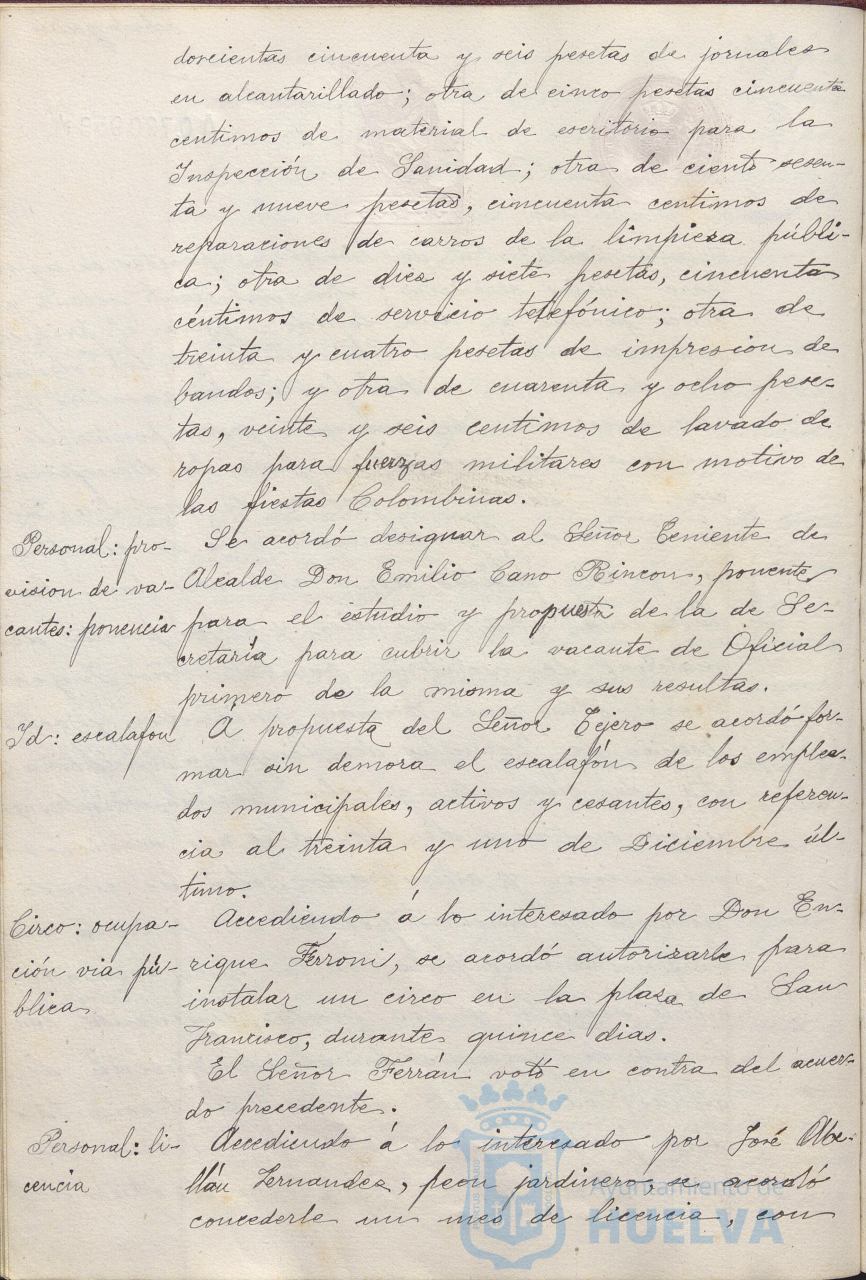 dorcientas cincuenta y seis pesetas de jornales
en alcantarillado; otra de cinco pesetas cincuenta
centimos de material de escritorio para la
Inspección de Sanidad; otra de ciento sesen-
ta y nueve pesetas, cincuenta centimos de
reparaciones de carros de la limpieza públi-
ca; otra de diez y siete pesetas, cincuenta
céntimos de servicio telefónico; otra de
treinta y cuatro pesetas de impresion de
bandos; y otra de cuarenta y ocho pese-
tas, veinte y seis centimos de lavado de
ropas para fuerzas militares con motivo de
las fiestas Colombinas.
Personal: pro-
vision de va-
cantes: ponencia
Se acordó designar al Señor Teniente de
Alcalde Don Emilio Cano Rincon, ponente
para el estudio y propuesta de la de Se-
cretaría para cubrir la vacante de Oficial
primero de la misma y sus resultas.
Id: escalafon
A propuesta del Señor Tejero se acordó for-
mar sin demora el escalafón de los emplea-
dos municipales, activos y cesantes, con referen-
cia al treinta y uno de Diciembre úl-
timo.
Circo: ocupa-
ción via pú-
blica
Accediendo á lo interesado por Don En-
rique Ferroni, se acordó autorizarle para
instalar un circo en la plaza de San
Francisco, durante quince dias.
El Señor Ferrán votó en contra del acuer-
do precedente.
Personal: li-
cencia
Accediendo á lo interesado por José
Fernandez, peon jardinero, se acordó
concederle un mes de licencia, con
Ayuntamiento de
HUELVA